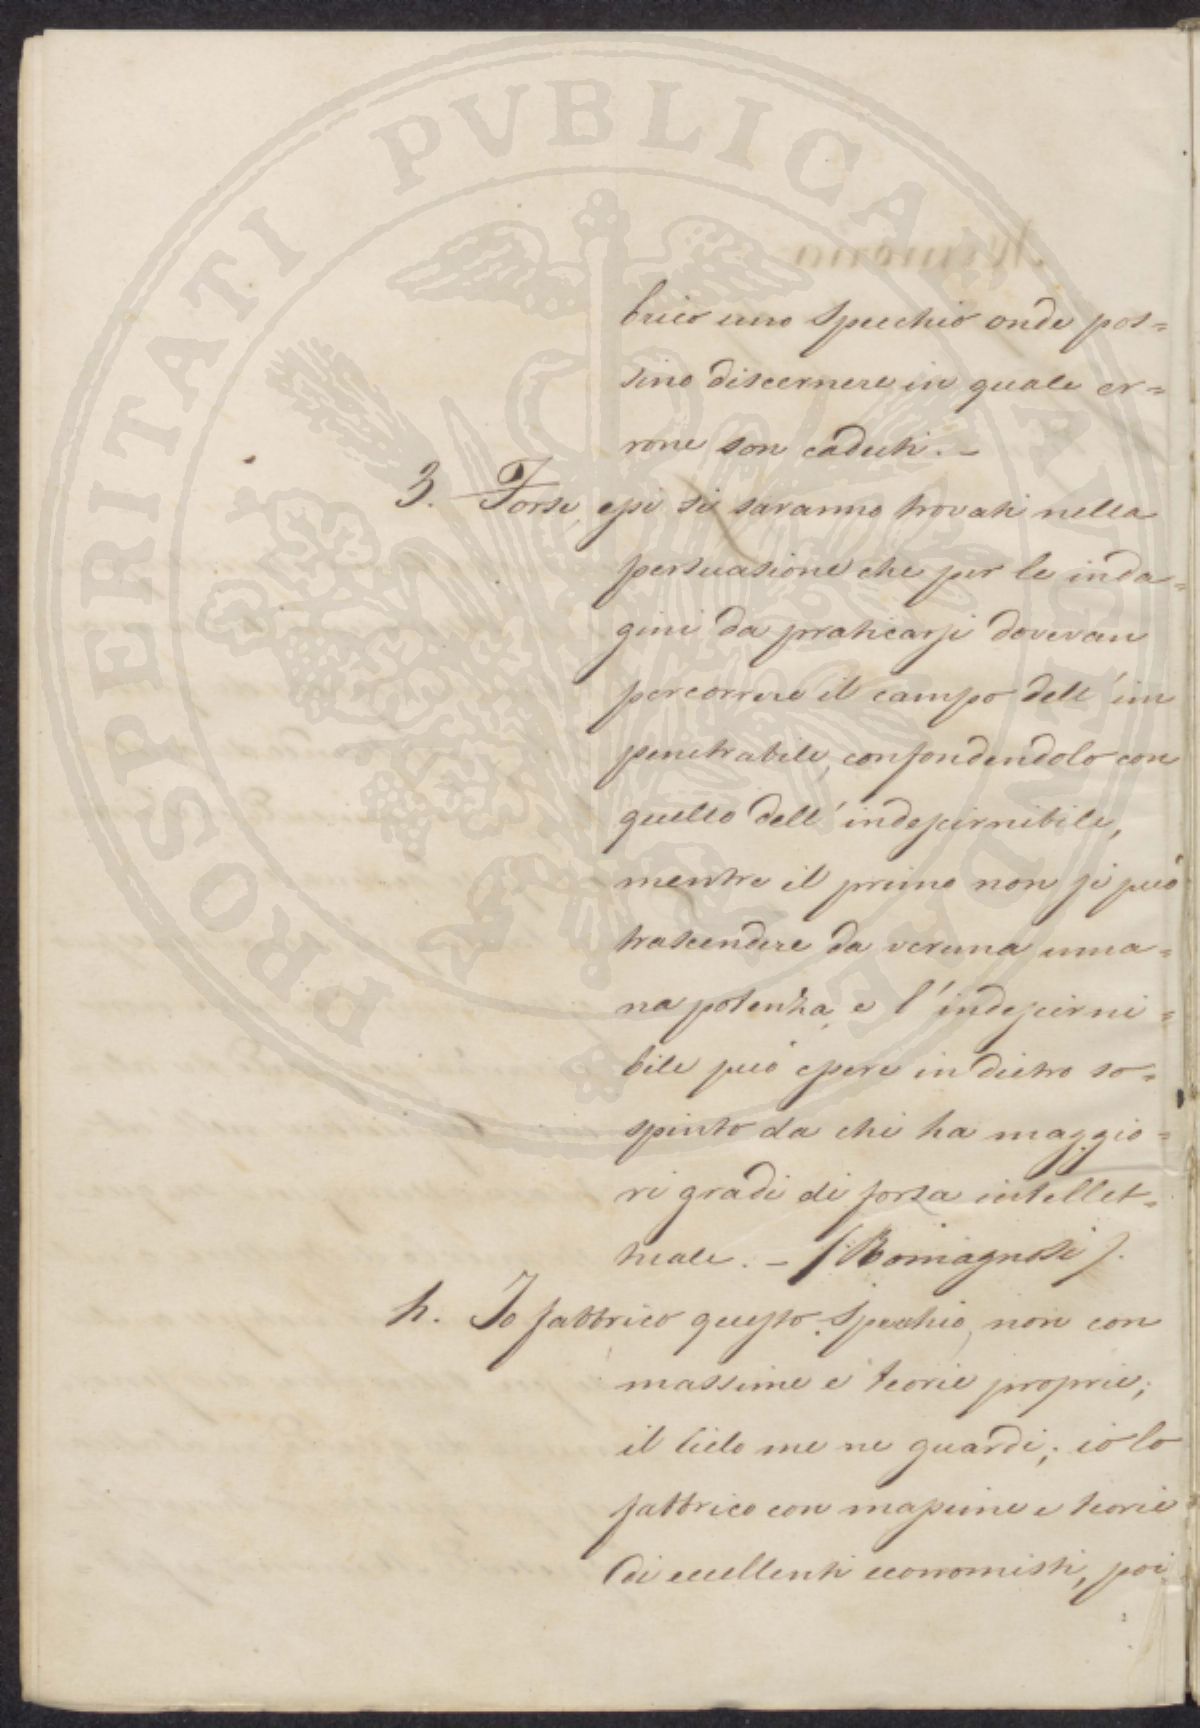 PROSPERITATI PVBLICAE AVGENDAE
brico uno specchio onde pos=
sino discernere in quale er=
rone son caduti. _
3. Forse, essi si saranno trovati nella
persuasione che per le inda=
gini da praticarsi dovevan
percorrere il campo dell'im
penetrabile, confondendolo con
quello dell'indefinibile,
mentre il primo non si può
trascendere da veruna uma=
na potenza, e l'indefini=
bile può essere indietro so=
spinto da chi ha maggio=
ri gradi di forza intellet=
tuale. _ (Romagnosi).
4. Io fabbrico questo specchio, non con
massime e teorie proprie;
il Cielo me ne guardi; io lo
fabbrico con massime e teorie
di eccellenti economisti, poi